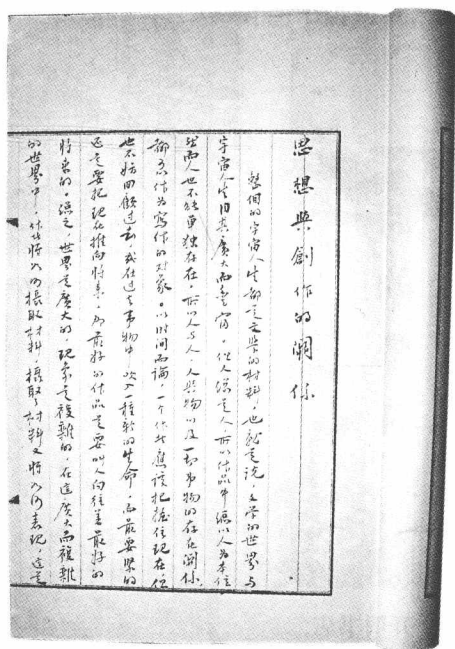 思想與創作的關係
整個的宇宙人生都是文學的材料，也就是說，文學的世界與
宇宙人生同其廣大而無窮，但人總是人，所以作品中總以人為本位
然而人也不能單獨存在，所以人與人，人與物以及一切事物的存在關係
都可作為寫作的對象。以時間而論，一个作者應該把握住現在，但
也不妨回顧過去，或在過去事物中，吹入一種新的生命，而最要緊的
還是要把現在推向將來，而最好的作品是要叫人向往着最好的
將來的，總之，世界是廣大的，現象是複雜的，在這廣大而複雜
的世界中，作者將如何攝取材料，攝取了材料又將如何表現，這是